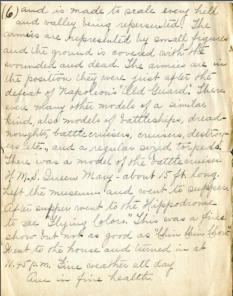 (6) and is made to scale every hill
and valley being represented. The
armies are represented by small figures
and the ground is covered with the
wounded and dead. The armies are in
the position they were just after the
defeat of Napoleon's "Old Guard". There
were many other models of a similar
kind, also models of battleships, dread-
noughts, battlecruisers, cruisers, destroy-
ers etc., and a regular sized torpedo.
There was a model of the battlecruiser
H.M.S. Queen Mary - about 15 ft. long.
Left the museum and went to supper.
After supper went to the Hippodrome
to see "Flying Colors." This was a fine
show but not as good as "Chin Chin Chow"
Went to the house and turned in at
11.45 p.m. Fine weather all day
Am in fine health.